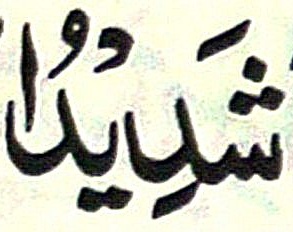 شَدِيْدُا